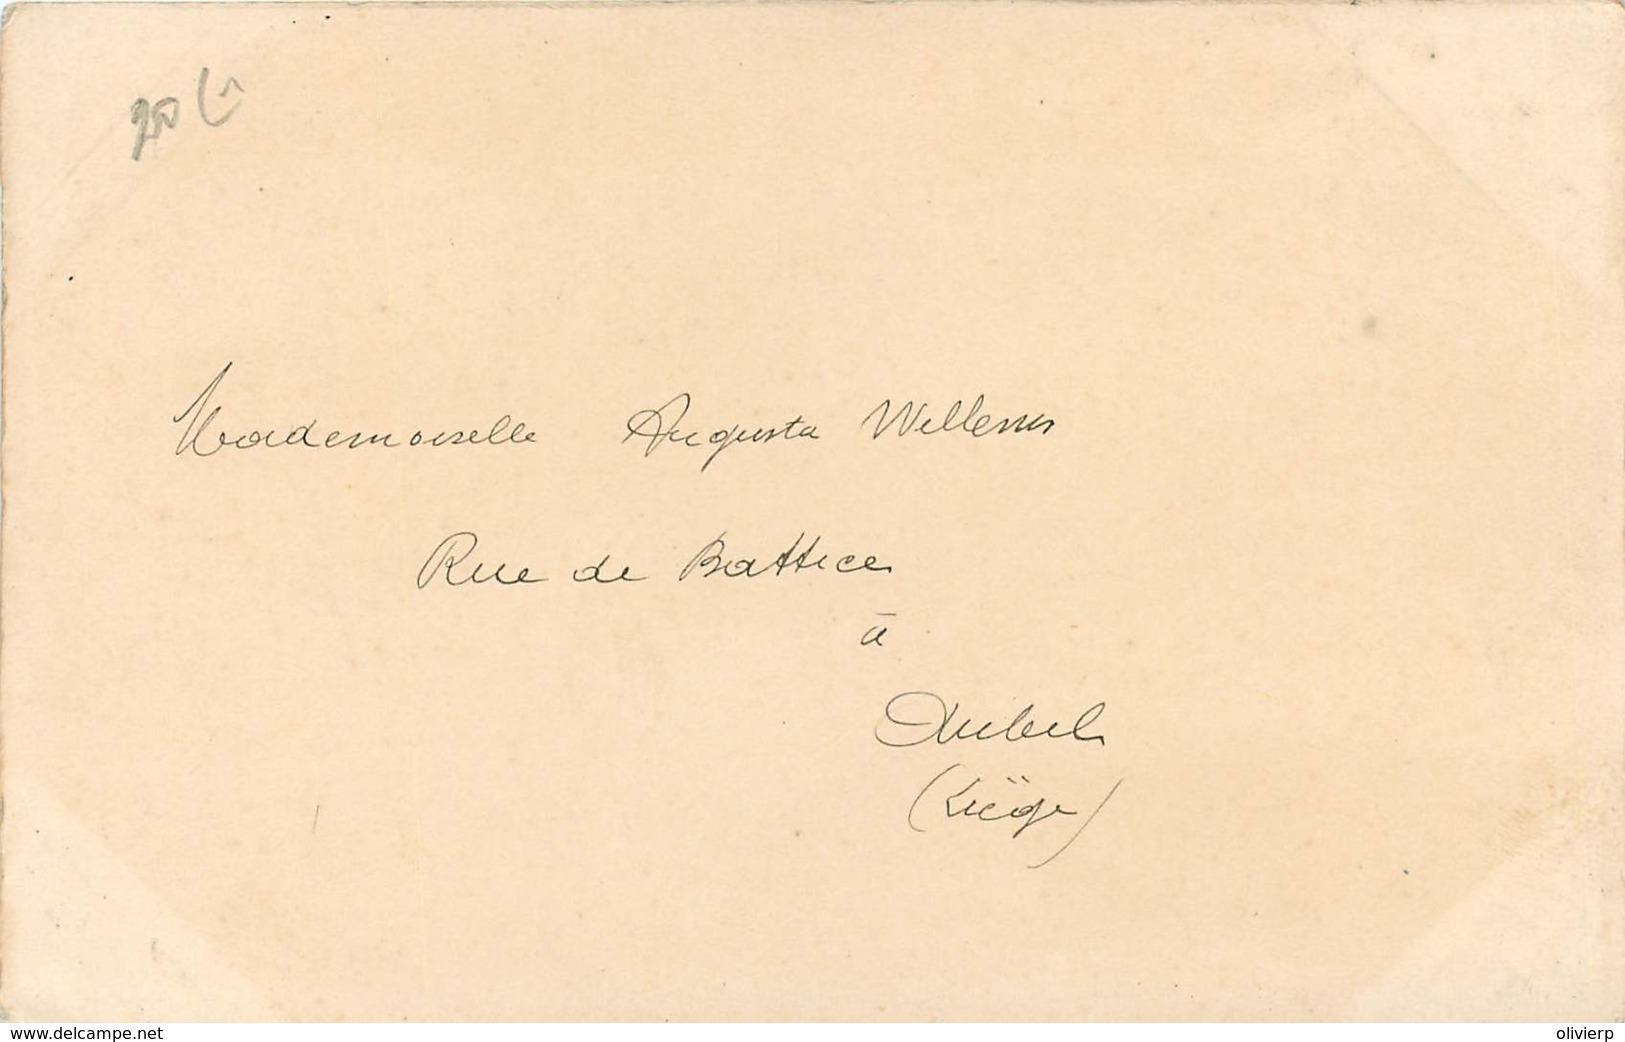 Mademoiselle Augusta Willems
Rue de Battice
à
Aubel
(Liège)
www.delcampe.net
olivierp